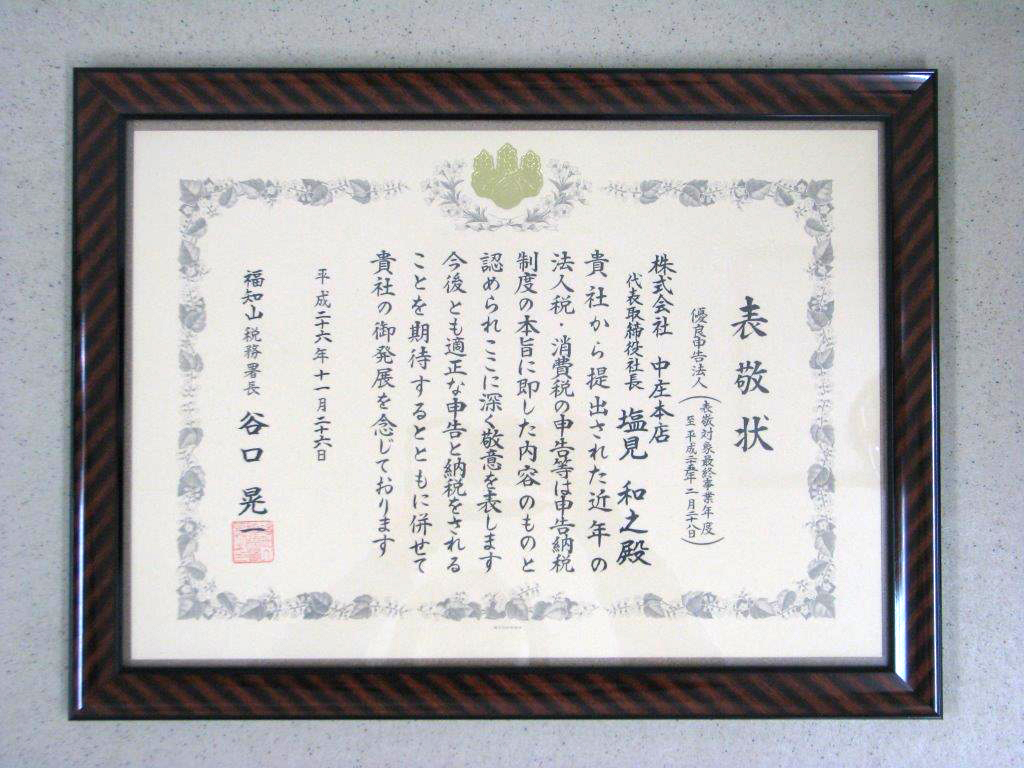 表敬状
優良申告法人
(表敬対象最終事業年度
至 平成二十五年 二月二十八日)
株式会社 中庄本店
代表取締役社長 塩見 和之殿
貴社から提出された近年の
法人税・消費税の申告等は申告納税
制度の本旨に即した内容のものと
認められここに深く敬意を表します
今後とも適正な申告と納税をされる
ことを期待するとともに併せて
貴社の御発展を念じております
平成二十六年十一月二十六日
福知山税務署長 谷口 晃一